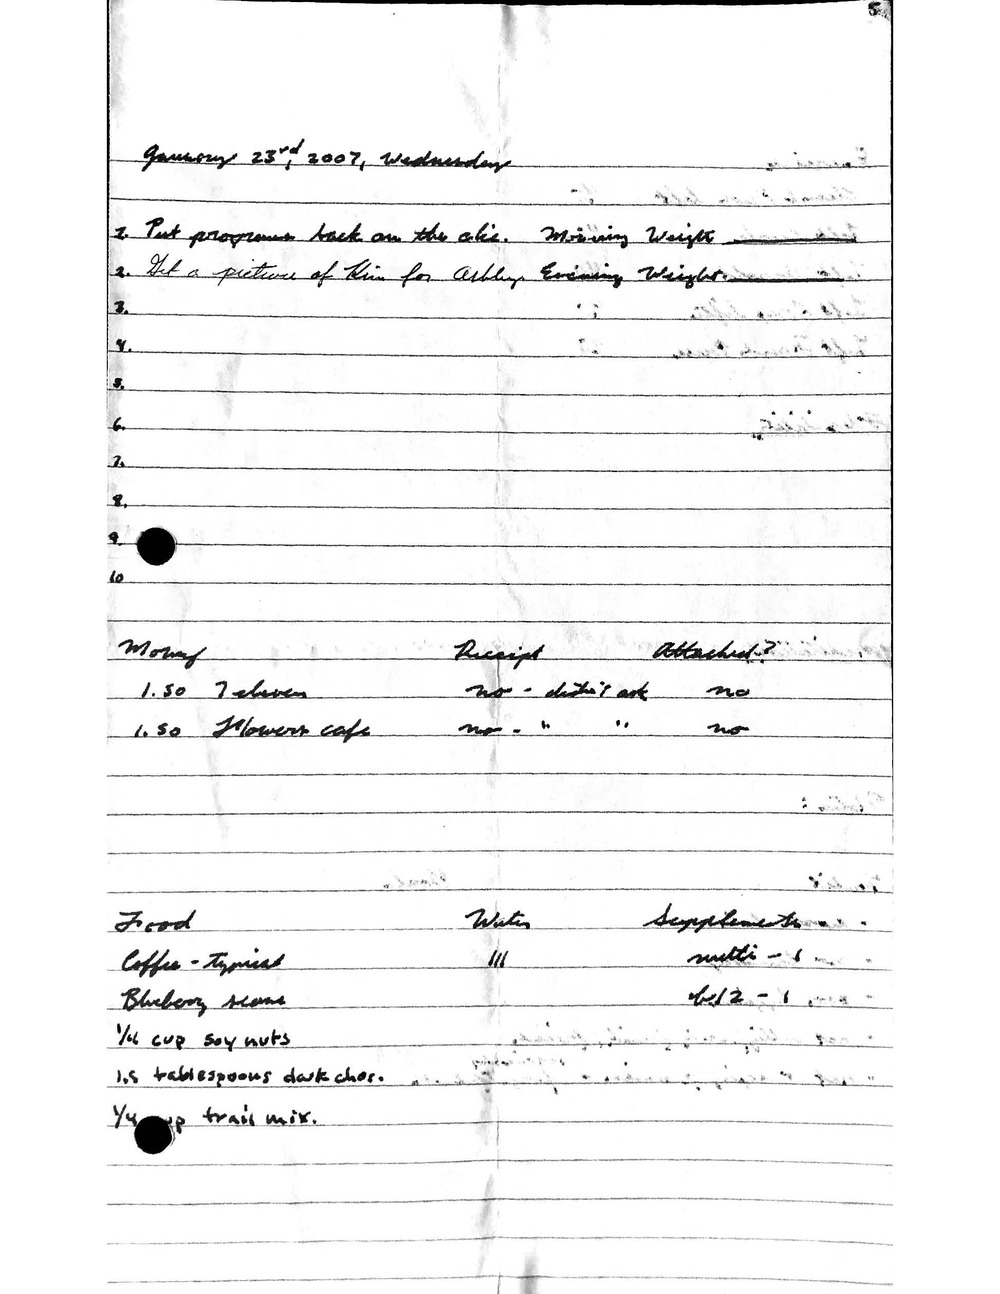 5
January 23rd, 2007, Wednesday
1. Put programs back on the Morning Weight
2. Get a picture of Kim for Ashley. Evening Weight.
3.
4.
5.
6.
7.
8.
9.
10
Money Receipt Attached?
1.50 7 eleven no - didn't ask no
1.50 Flowers cafe no - " " no
Food Water Supplements
Coffee - typical III multi - 1
Blueberry scone b12 - 1
1/4 cup soy nuts
1.5 tablespoons dark choc.
1/4 cup trail mix.